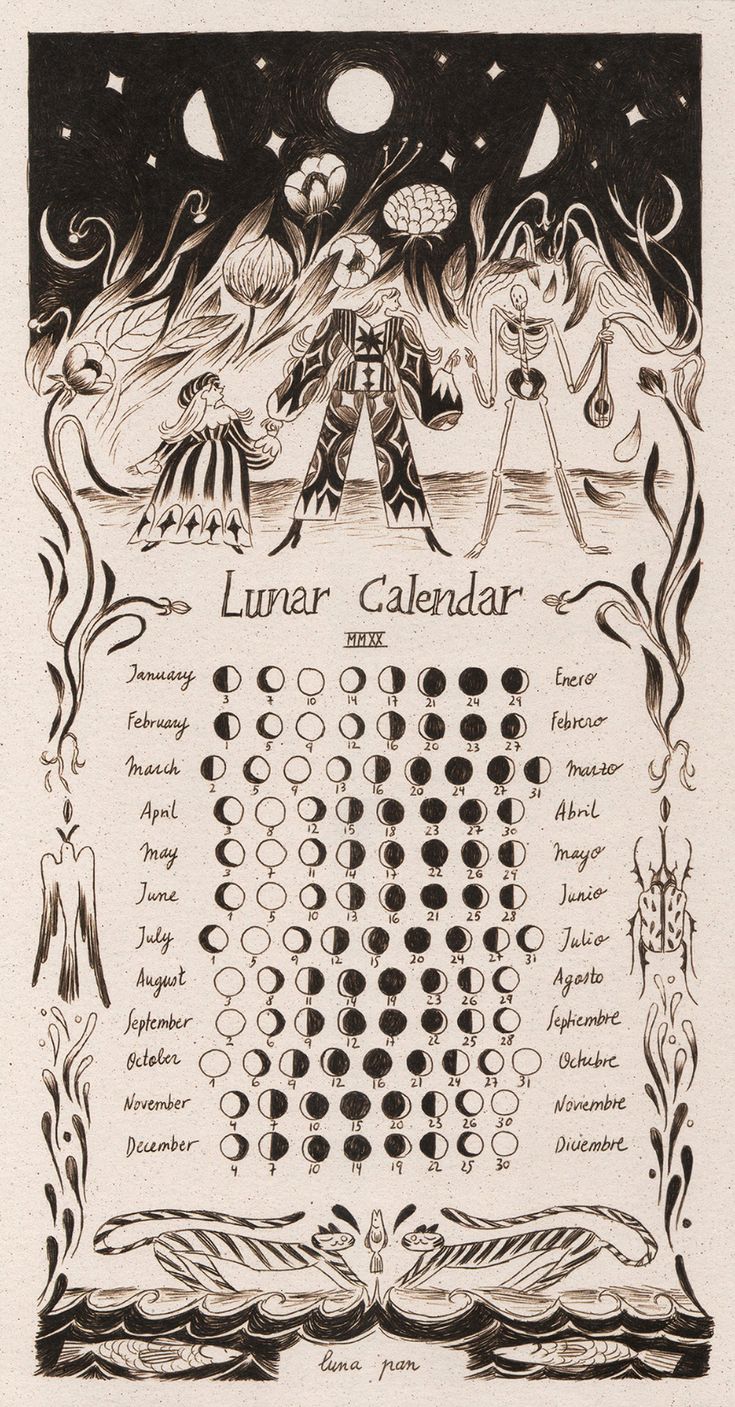 Lunar Calendar
MMXX
January Enero
3 7 10 14 17 21 24 29
February Febrero
1 5 9 12 16 20 23 27
March Marzo
2 5 9 13 16 20 24 27 31
April Abril
3 8 12 15 18 23 27 30
May Mayo
3 7 11 14 17 22 26 29
June Junio
1 5 10 13 16 21 25 28
July Julio
1 5 9 12 15 20 24 27 31
August Agosto
3 8 11 14 19 23 26 29
September Septiembre
2 6 9 12 17 22 25 28
October Octubre
1 6 9 12 16 21 24 27 31
November Noviembre
4 7 10 15 20 23 26 30
December Diciembre
4 7 10 14 19 22 25 30
luna pan